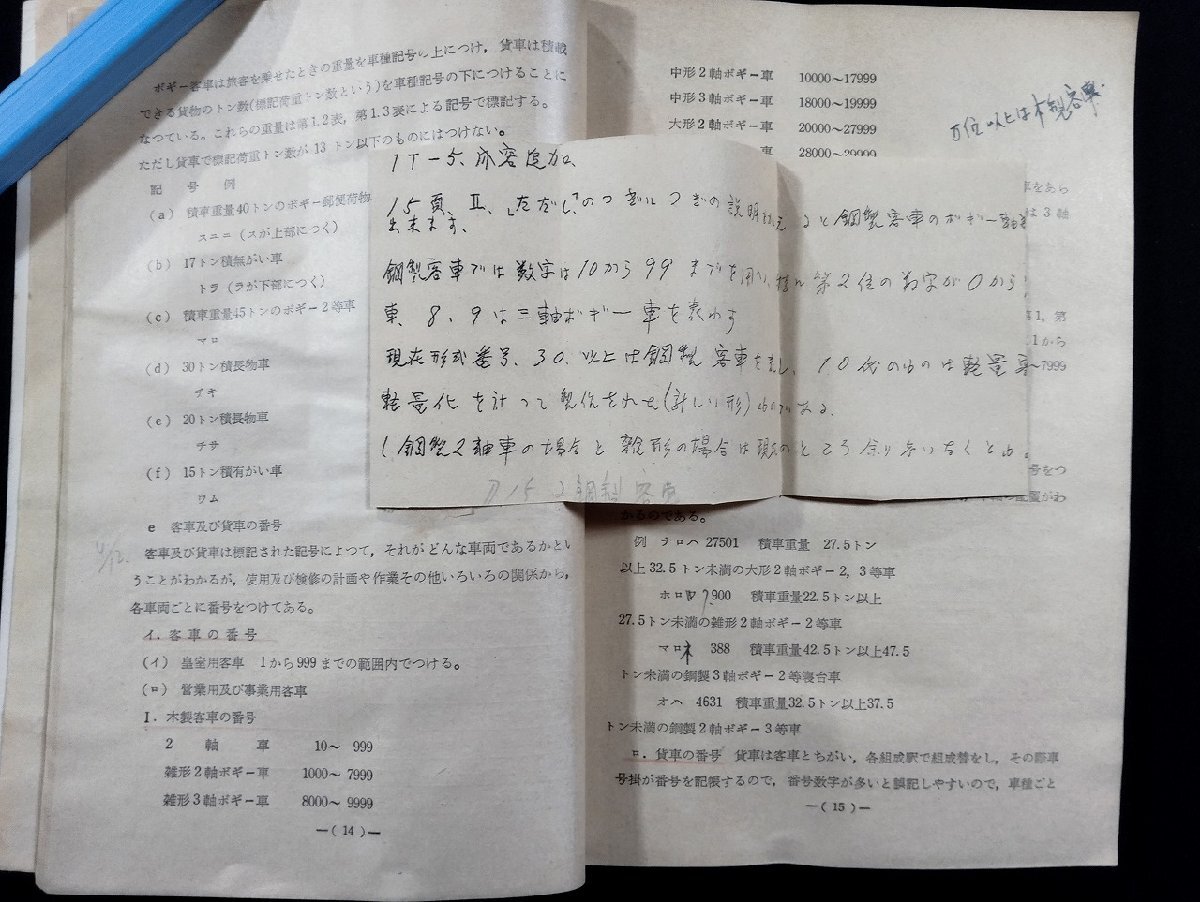 ボギー客車は旅客を乗せたときの重量を車種記号の上につけ，貨車は積載
できる貨物のトン数(標記荷重トン数という)を車種記号の下につけることに
なつている。これらの重量は第1.2表，第1.3表による記号で標記する。
ただし貨車で標記荷重トン数が13トン以下のものにはつけない。
記 号 例
(a) 積車重量40トンのボギー郵便荷物
スユニ (スが上部につく)
(b) 17トン積無がい車
トラ (ラが下部につく)
(c) 積車重量45トンのボギー2等車
マロ
(d) 30トン積長物車
チキ
(e) 20トン積長物車
チサ
(f) 15トン積有がい車
ワム
e 客車及び貨車の番号
客車及び貨車は標記された記号によつて，それがどんな車両であるかとい
うことがわかるが，使用及び検修の計画や作業その他いろいろの関係から，
各車両ごとに番号をつけてある。
イ．客車の番号
(イ) 皇室用客車 1から999までの範囲内でつける。
(ロ) 営業用及び事業用客車
I．木製客車の番号
2 軸 車 10～ 999
雑形2軸ボギー車 1000～ 7999
雑形3軸ボギー車 8000～ 9999
―(14)―
中形2軸ボギー車 10000～17999
中形3軸ボギー車 18000～19999
大形2軸ボギー車 20000～27999
車 28000～29999
万位以上は木製客車
1T-5、内容追加、
15頁、II、「ただし」のつぎに つぎの説明 ると鋼製客車のボギー軸
出来ます、
鋼製客車では数字は10から99までを用い、 第2位の数字が0から
車、8、9は三軸ボギー車を表わす
現在形式番号、30、以上は鋼製客車を表し、10代のものは軽量
軽量化を計って製作された(新しい形)ものである。
(鋼製2軸車の場合と雑形の場合は現在のところ余り
車をあら
は3軸
第1，第
1から
～7999
号をつ
配置がわ
かるのである。
例 ヲロハ 27501 積車重量 27.5トン
以上32.5トン未満の大形2軸ボギー2，3等車
ホロ 7900 積車重量22.5トン以上
27.5トン未満の雑形2軸ボギー2等車
マロネ 388 積車重量42.5トン以上47.5
トン未満の鋼製3軸ボギー2等寝台車
オハ 4631 積車重量32.5トン以上37.5
トン未満の鋼製2軸ボギー3等車
ロ．貨車の番号 貨車は客車とちがい，各組成駅で組成替をし，その際車
号掛が番号を記帳するので，番号数字が多いと誤記しやすいので，車種ごと
―(15)―